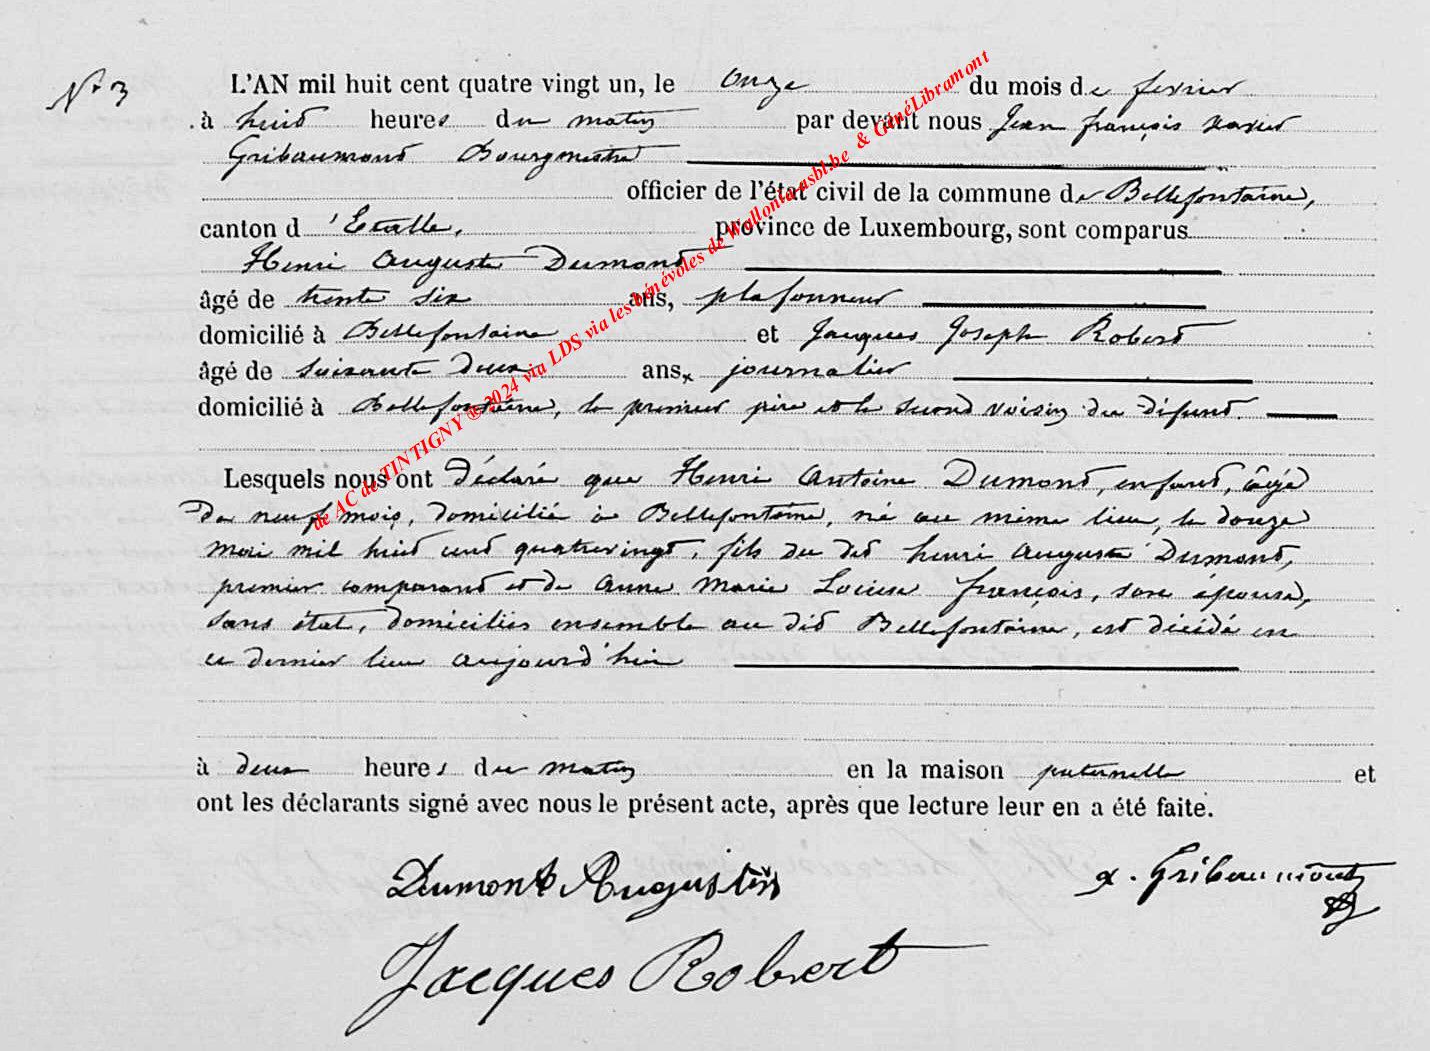 N° 3
L'AN mil huit cent quatre vingt un, le onze du mois de fevrier
à huit heures du matin par devant nous Jean françois xavier
Gribaumont Bourgmestre
officier de l'état civil de la commune de Bellefontaine,
canton d'Etalle, province de Luxembourg, sont comparus
Henri Auguste Dumont
âgé de trente six ans, plafonneur
domicilié à Bellefontaine et Jacques Joseph Robert
âgé de soixante deux ans, journalier
domicilié à Bellefontaine, le premier père et le second voisin du défunt.
Lesquels nous ont déclaré que Henri Antoine Dumont, enfant, âgé
de neuf mois, domicilié à Bellefontaine, né au même lieu, le douze
mai mil huit cent quatrevingt, fils du dit henri Auguste Dumont,
premier comparant et de Anne Marie Louise françois, son épouse,
sans état, domiciliés ensemble au dit Bellefontaine, est décédé en
ce dernier lieu aujourd'hui
à deux heures du matin en la maison paternelle et
ont les déclarants signé avec nous le présent acte, après que lecture leur en a été faite.
Dumont Augustin
x. Gribaumont
Jacques Robert
de AC de TINTIGNY ® 2024 via LDS via les bénévoles de Wallonia asbl.be & GénéLibramont